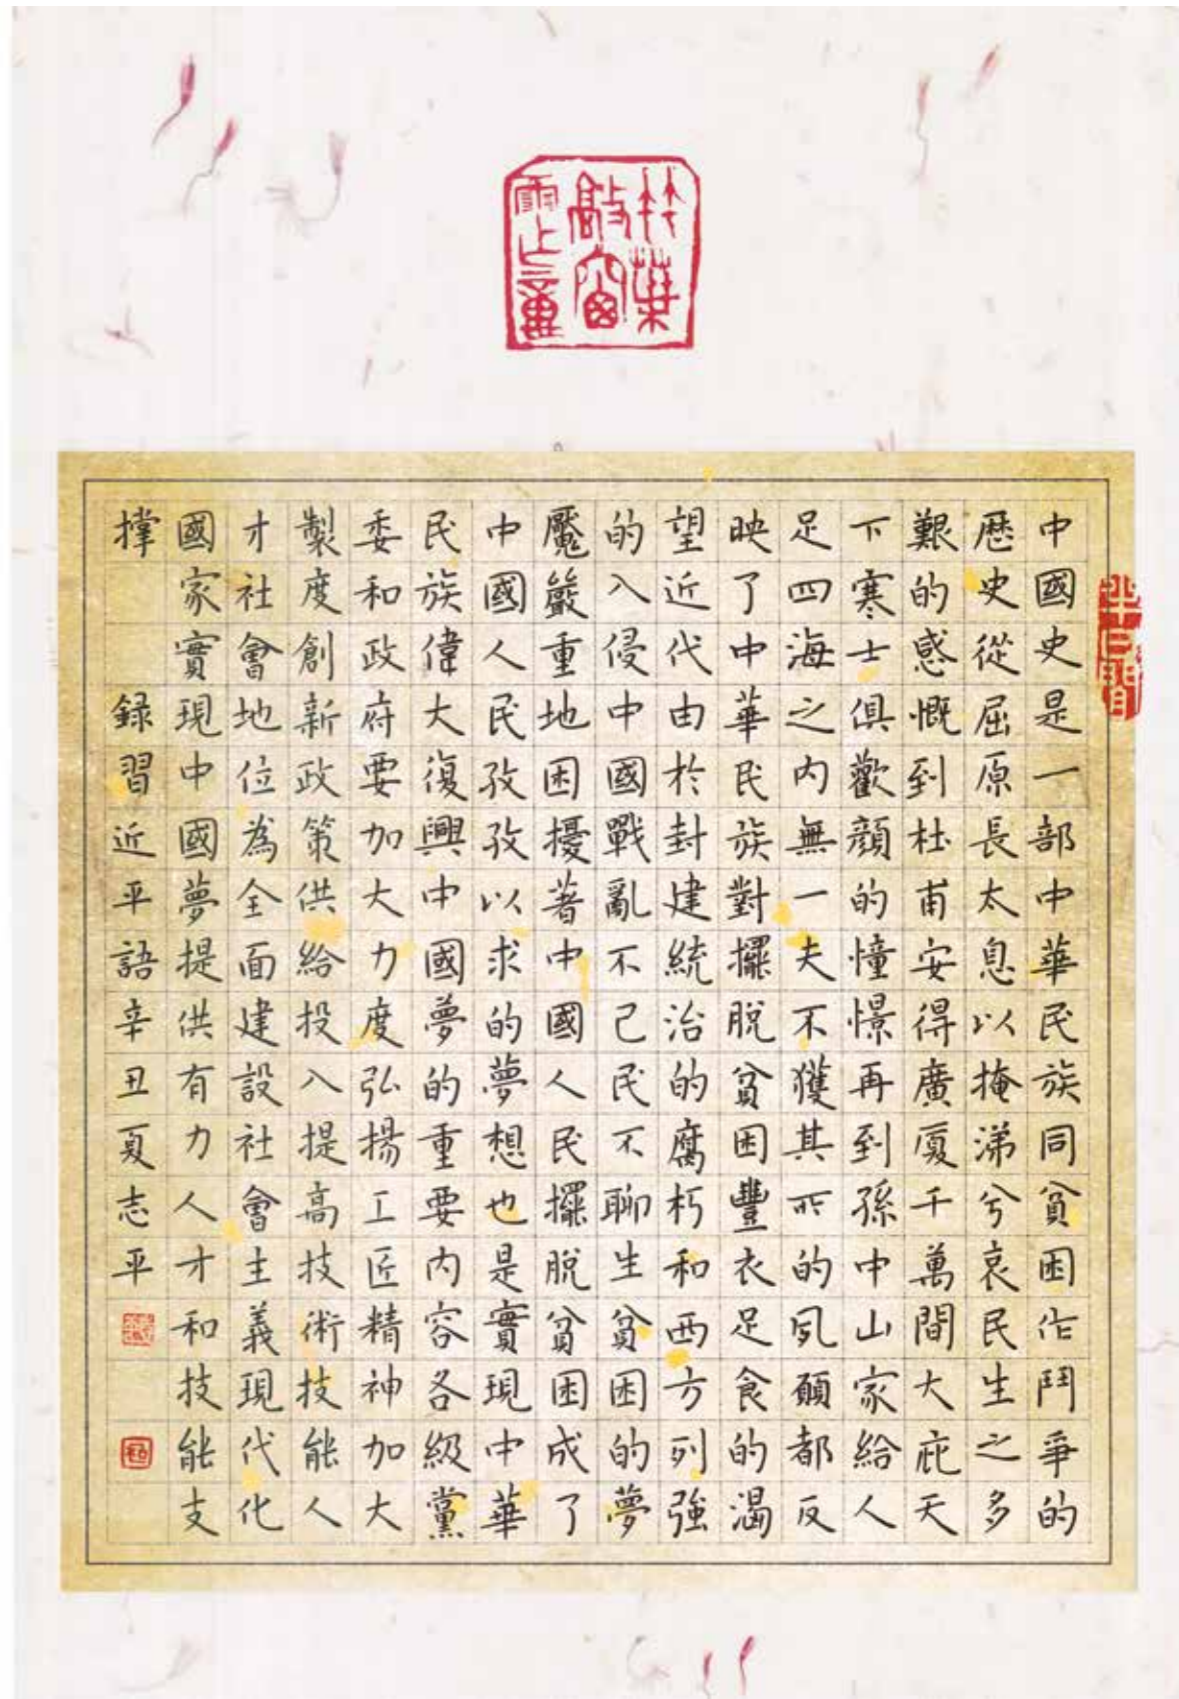 竹葉
敲窗
半日閒
中國史是一部中華民族同貧困作鬥爭的
歷史從屈原長太息以掩涕兮哀民生之多
艱的感慨到杜甫安得廣廈千萬間大庇天
下寒士俱歡顏的憧憬再到孫中山家給人
足四海之內無一夫不獲其所的夙願都反
映了中華民族對擺脫貧困豐衣足食的渴
望近代由於封建統治的腐朽和西方列強
的入侵中國戰亂不己民不聊生貧困的夢
魘嚴重地困擾著中國人民擺脫貧困成了
中國人民孜孜以求的夢想也是實現中華
民族偉大復興中國夢的重要內容各級黨
委和政府要加大力度弘揚工匠精神加大
製度創新政策供給投入提高技術技能人
才社會地位為全面建設社會主義現代化
國家實現中國夢提供有力人才和技能支
撐 録習近平語辛丑夏志平